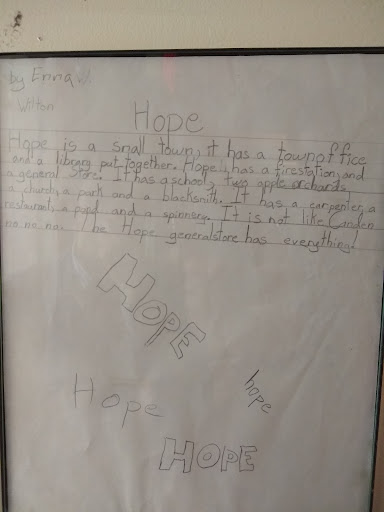 by Enna W.
Wilton
Hope
Hope is a small town, it has a town office
and a library put together. Hope has a firestation, and
a general Store. It has a school, two apple orchards
a church, a park and a blacksmith. It has a carpenter, a
restaurant, a pond and a spinnery. It is not like Camden
no no no. The Hope generalstore has everything.
HOPE
Hope
hope
HOPE